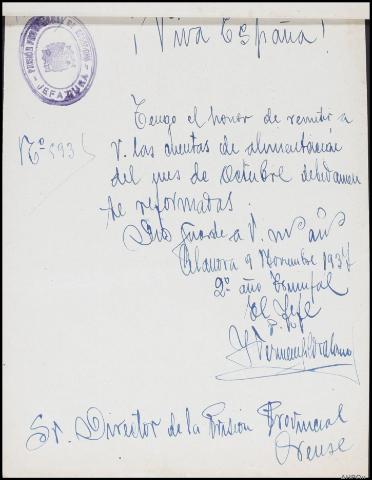 ¡Viva España!
JEFATURA
Nº 593
Tengo el honor de remitir a
V. las cuentas de alimentación
del mes de Octubre debidamen
te reformadas.
Dios guarde a V. ms añs
Celanova 9 Noviembre 1937
2º año Triunfal
El Jefe
Sr. Director de la Prisión Provincial
Orense